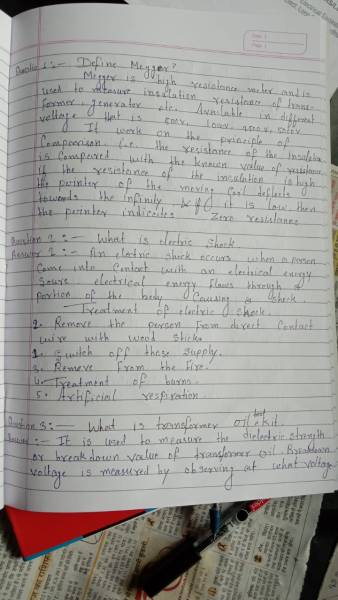 Date :
Page :
Question 1 :- Define Meggar?
Megger is high resistance meter and is
used to measure insulation resistance of trans-
former, generator etc. Available in different
voltage that is 500v, 1000v, 2500v, 5000v
It work on the principle of
Comparison i.e. the resistance of the insulation
is compared with the known value of resistance
If the resistance of the insulation is high
the pointer of the moving coil deflects
towards the infinity & if it is low then
the pointer indicates Zero resistance
Question 2 :- What is electric shock
Answer 2 :- An eletric shock occurs when a person
Come into Contact with an electrical energy
Sours electrical energy flows through a
portion of the body Causing a shock.
Treatment of electric shock.
2. Remove the person from direct Contact
wire with wood stick.
1. Switch off those Supply.
3. Remove from the fire.
4. Treatment of burns.
5. Artificial respiration.
Question 3 :- What is transformer oil test kit.
Answer :- It is used to measure the dielectric strength
or breakdown value of transformer oil. Breakdown
voltage is measured by observing at what voltage